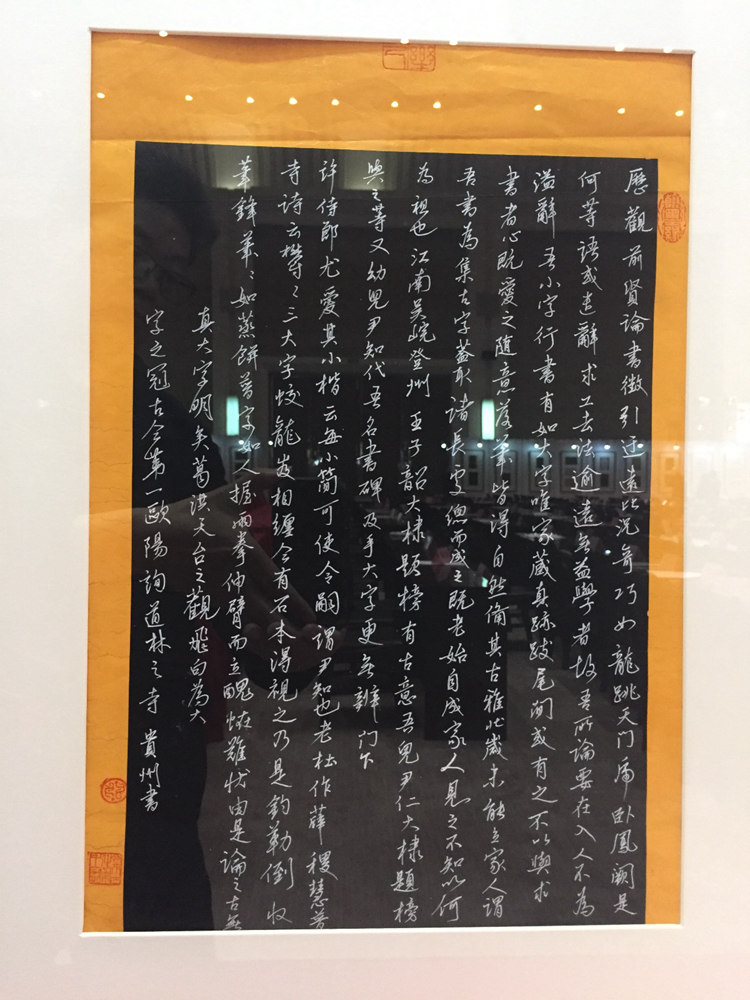 歷觀前賢論書徵引迂遠比況奇巧如龍跳天门虎卧鳳阙是
何等語或遣辭求工去法逾遠無益學者故吾所論要在入人不為
溢辭 吾小字行書有如大字唯家藏真跡跋尾间或有之不以與求
書者心既愛之随意落筆皆得自然備其古雅壮歲未能立家人謂
吾書為集古字蓋取諸長處總而成之既老始自成家人見之不知以何
為祖也江南吴皖登州王子韶大隸题榜有古意吾兒尹仁大隸題榜
與之等又幼兒尹知代吾名書碑及手大字更無辨门下
許侍郎尤爱其小楷云每小简可使令嗣謂尹知也老杜作薛稷慧普
寺诗云鬱〻三大字蛟龍岌相缠今有石本得视之乃是鈎勒倒收
筆鋒筆〻如蒸餅普字如人握两拳伸臂而立醜怪難状由是論之古無
真大字明矣葛洪天台之觀飛白為大
字之冠古今第一歐陽詢道林之寺 貴州書